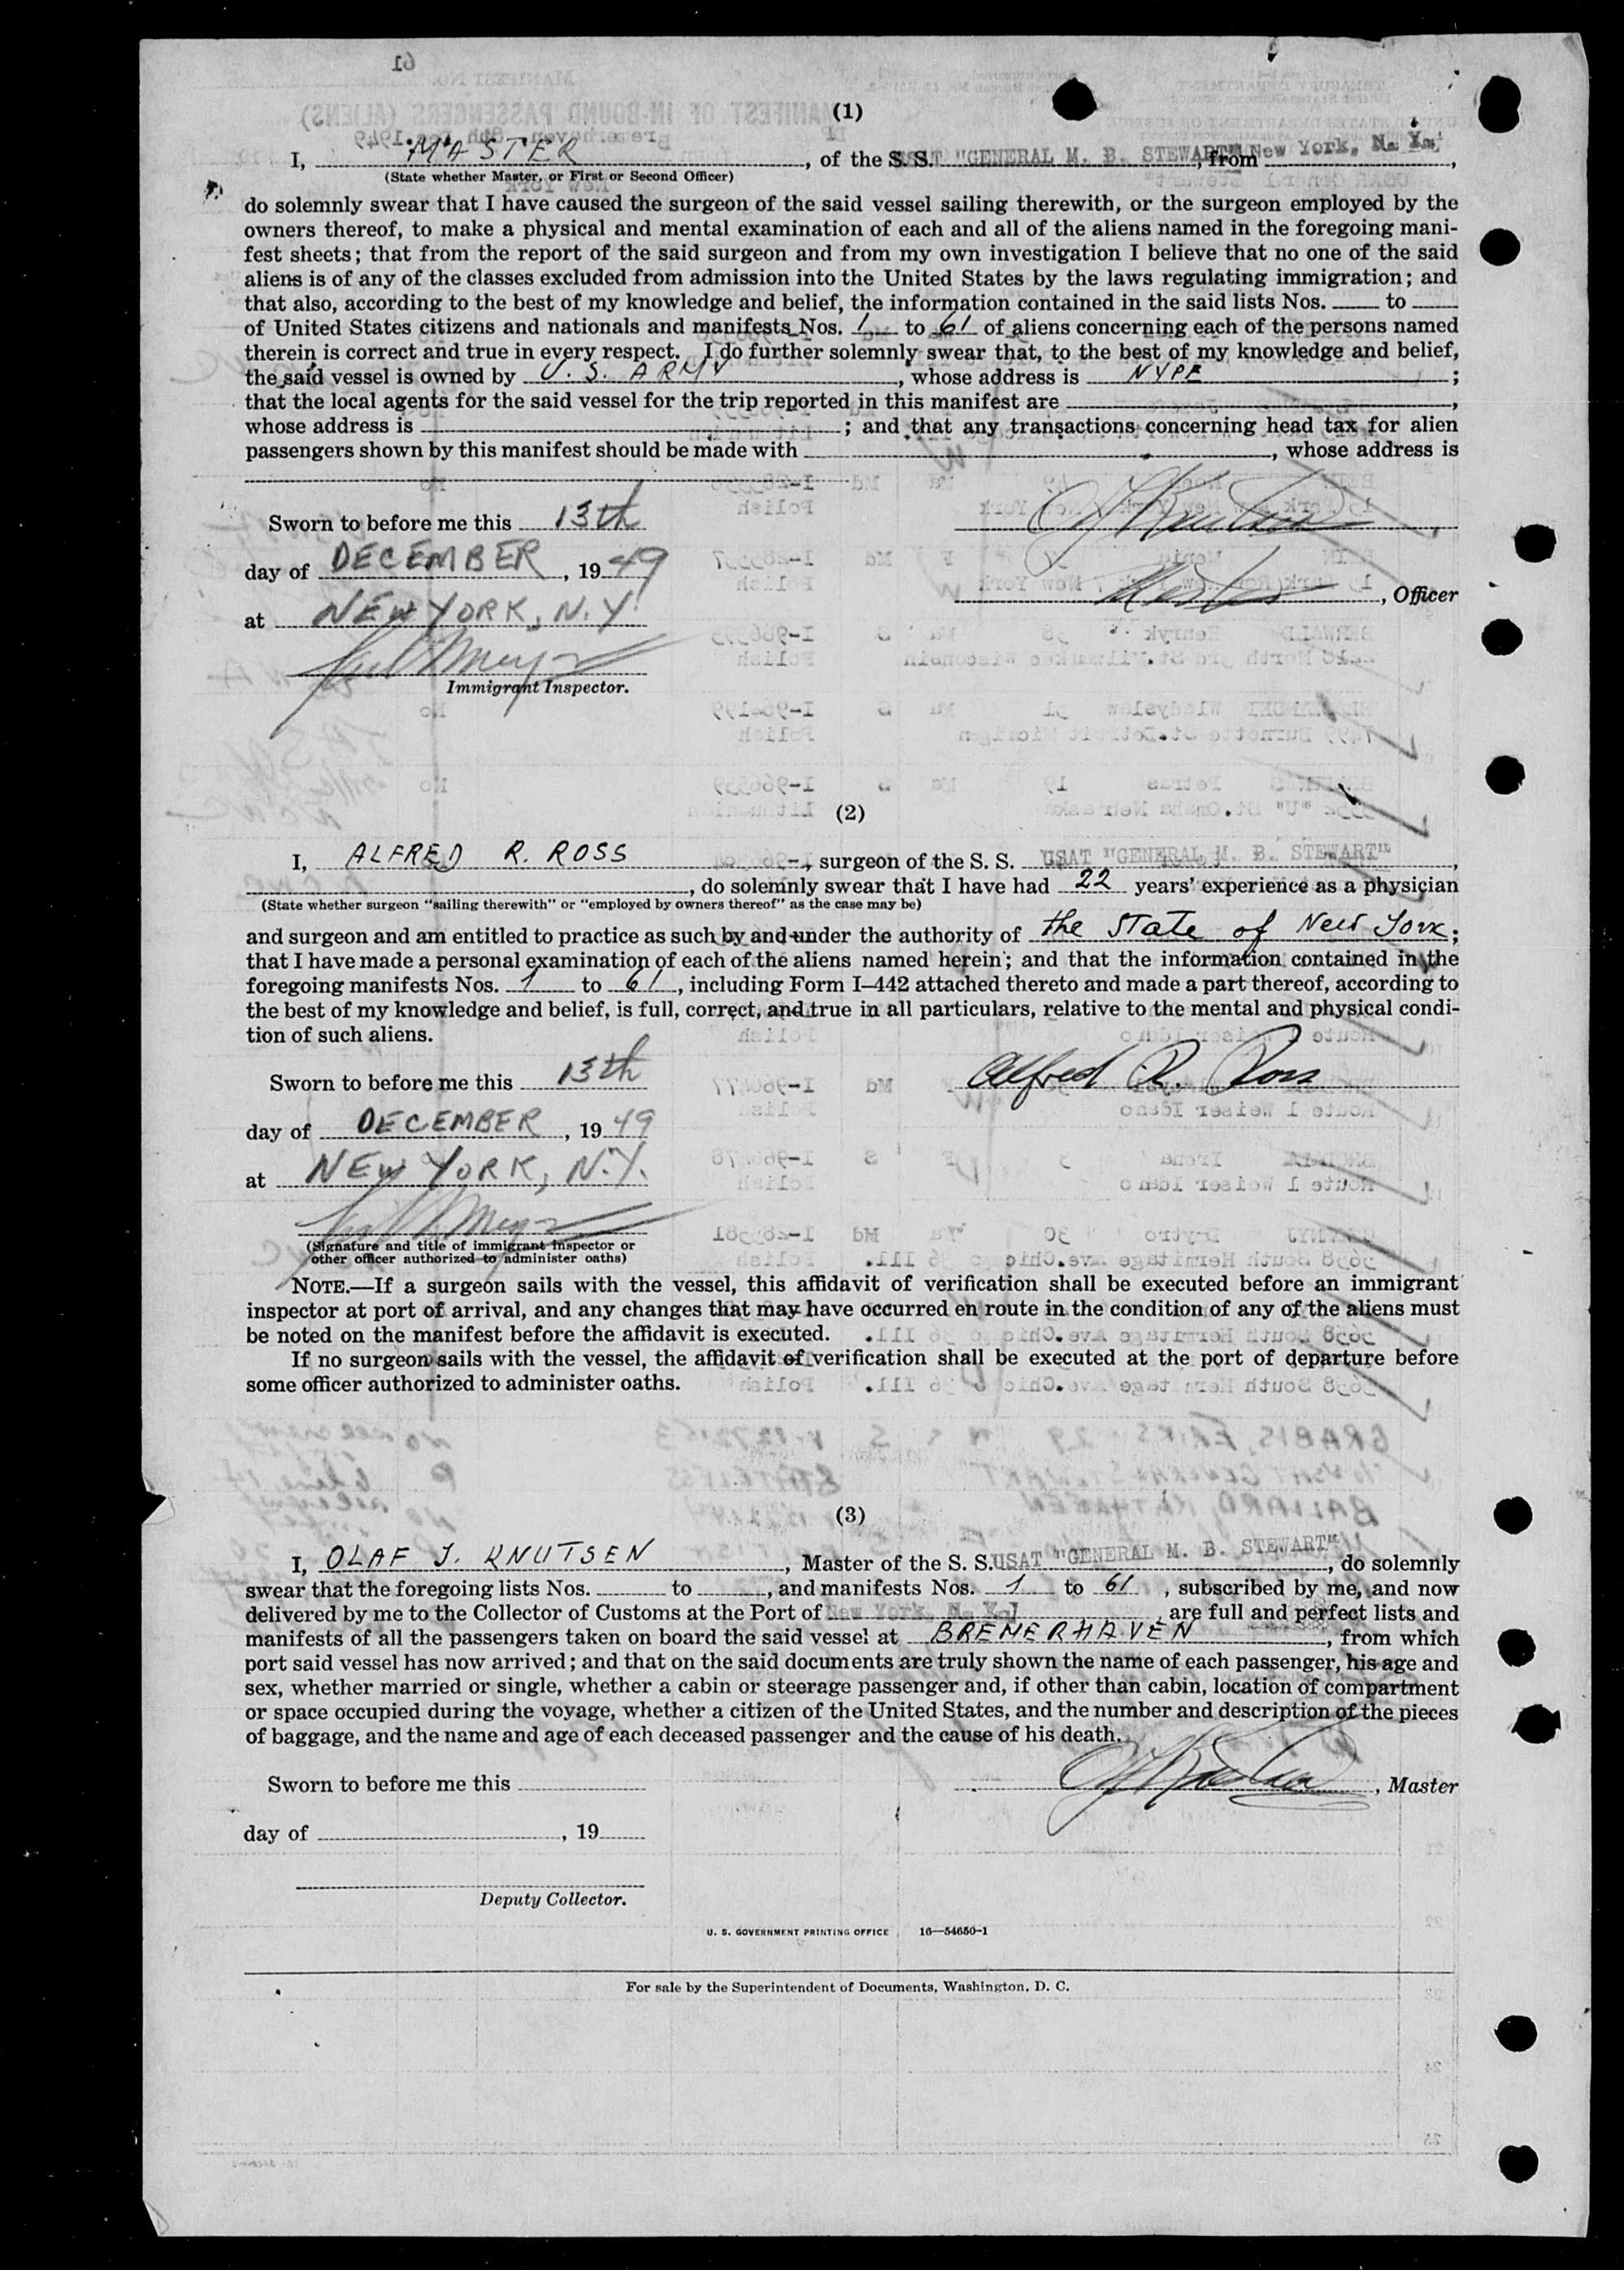 (1)
I, MASTER, of the S. S. USAT "GENERAL M. B. STEWART", from New York, N. Y.,
(State whether Master, or First or Second Officer)
do solemnly swear that I have caused the surgeon of the said vessel sailing therewith, or the surgeon employed by the
owners thereof, to make a physical and mental examination of each and all of the aliens named in the foregoing mani-
fest sheets; that from the report of the said surgeon and from my own investigation I believe that no one of the said
aliens is of any of the classes excluded from admission into the United States by the laws regulating immigration; and
that also, according to the best of my knowledge and belief, the information contained in the said lists Nos. ____ to ____
of United States citizens and nationals and manifests Nos. 1 to 61 of aliens concerning each of the persons named
therein is correct and true in every respect. I do further solemnly swear that, to the best of my knowledge and belief,
the said vessel is owned by U. S. ARMY, whose address is NYPE;
that the local agents for the said vessel for the trip reported in this manifest are ____,
whose address is ____; and that any transactions concerning head tax for alien
passengers shown by this manifest should be made with ____, whose address is
Sworn to before me this 13th
day of DECEMBER, 1949
Master, Officer
at NEW YORK, N.Y.
Immigrant Inspector.
(2)
I, ALFRED R. ROSS, surgeon of the S. S. USAT "GENERAL M. B. STEWART",
____, do solemnly swear that I have had 22 years' experience as a physician
(State whether surgeon "sailing therewith" or "employed by owners thereof" as the case may be)
and surgeon and am entitled to practice as such by and under the authority of the State of New York;
that I have made a personal examination of each of the aliens named herein; and that the information contained in the
foregoing manifests Nos. 1 to 61, including Form I–442 attached thereto and made a part thereof, according to
the best of my knowledge and belief, is full, correct, and true in all particulars, relative to the mental and physical condi-
tion of such aliens.
Sworn to before me this 13th
Alfred R. Ross
day of DECEMBER, 1949
at NEW YORK, N.Y.
(Signature and title of immigrant inspector or
other officer authorized to administer oaths)
NOTE.—If a surgeon sails with the vessel, this affidavit of verification shall be executed before an immigrant
inspector at port of arrival, and any changes that may have occurred en route in the condition of any of the aliens must
be noted on the manifest before the affidavit is executed.
If no surgeon sails with the vessel, the affidavit of verification shall be executed at the port of departure before
some officer authorized to administer oaths.
(3)
I, OLAF J. KNUTSEN, Master of the S. S. USAT "GENERAL M. B. STEWART", do solemnly
swear that the foregoing lists Nos. ____ to ____, and manifests Nos. 1 to 61, subscribed by me, and now
delivered by me to the Collector of Customs at the Port of New York, N. Y., are full and perfect lists and
manifests of all the passengers taken on board the said vessel at BREMERHAVEN, from which
port said vessel has now arrived; and that on the said documents are truly shown the name of each passenger, his age and
sex, whether married or single, whether a cabin or steerage passenger and, if other than cabin, location of compartment
or space occupied during the voyage, whether a citizen of the United States, and the number and description of the pieces
of baggage, and the name and age of each deceased passenger and the cause of his death.
Sworn to before me this ____
, Master
day of ____, 19____
Deputy Collector.
U. S. GOVERNMENT PRINTING OFFICE 16—54650-1
For sale by the Superintendent of Documents, Washington, D. C.